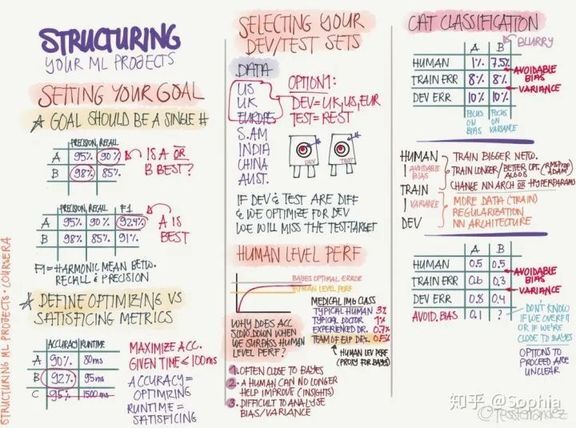 STRUCTURING
YOUR ML PROJECTS
SETTING YOUR GOAL
GOAL SHOULD BE A SINGLE #
PRECISION RECALL
A 95% 90%
B 98% 85%
IS A OR
B BEST?
PRECISION RECALL F1
A 95% 90% 92.4%
B 98% 85% 91%
A IS
BEST
F1 = HARMONIC MEAN BETW.
RECALL & PRECISION
DEFINE OPTIMIZING VS
SATISFICING METRICS
ACCURACY RUNTIME
A 90% 80ms
B 92% 95ms
C 95% 1500ms
MAXIMIZE ACC.
GIVEN TIME ≤100ms
ACCURACY =
OPTIMIZING
RUNTIME =
SATISFICING
STRUCTURING ML PROJECTS • COURSERA
SELECTING YOUR
DEV/TEST SETS
DATA
US
UK
EUROPE
S.AM
INDIA
CHINA
AUST.
OPTION1:
DEV=UK,US,EUR
TEST=REST
DEV
TEST
IF DEV & TEST ARE DIFF
& WE OPTIMIZE FOR DEV
WE WILL MISS THE TEST-TARGET
HUMAN LEVEL PERF
BAYES OPTIMAL ERROR
HUMAN LEVEL PERF
WHY DOES ACC
SLOW DOWN WHEN
WE SURPASS HUMAN
LEVEL PERF?
MEDICAL IMG CLASS
TYPICAL HUMAN 3%
TYPICAL DOCTOR 1%
EXPERIENCED DR. 0.7%
TEAM OF EXP DRS. 0.5%
HUMAN LEV PERF
(PROXY FOR BAYES)
1 OFTEN CLOSE TO BAYES
2 A HUMAN CAN NO LONGER
HELP IMPROVE (INSIGHTS)
3 DIFFICULT TO ANALYSE
BIAS/VARIANCE
CAT CLASSIFICATION
BLURRY
A B
HUMAN 1% 7.5%
TRAIN ERR 8% 8%
DEV ERR 10% 10%
AVOIDABLE
BIAS
VARIANCE
FOCUS ON BIAS
FOCUS ON VARIANCE
HUMAN
AVOIDABLE
BIAS
TRAIN
VARIANCE
DEV
TRAIN BIGGER NETW.
TRAIN LONGER/BETTER OPT. ALGOS (RMSPROP ADAM)
CHANGE NN ARCH OR HYPERPARAMS
MORE DATA (TRAIN)
REGULARIZATION
NN ARCHITECTURE
HUMAN 0.5 0.5
TRAIN ERR 0.6 0.3
DEV ERR 0.8 0.4
AVOID. BIAS 0.1 ?
AVOIDABLE
BIAS
VARIANCE
DON'T KNOW
IF WE OVERFIT
OR IF WE'RE
CLOSE TO BAYES
OPTIONS TO
PROCEED ARE
UNCLEAR
知乎 @Sophia
@TessFerrandez